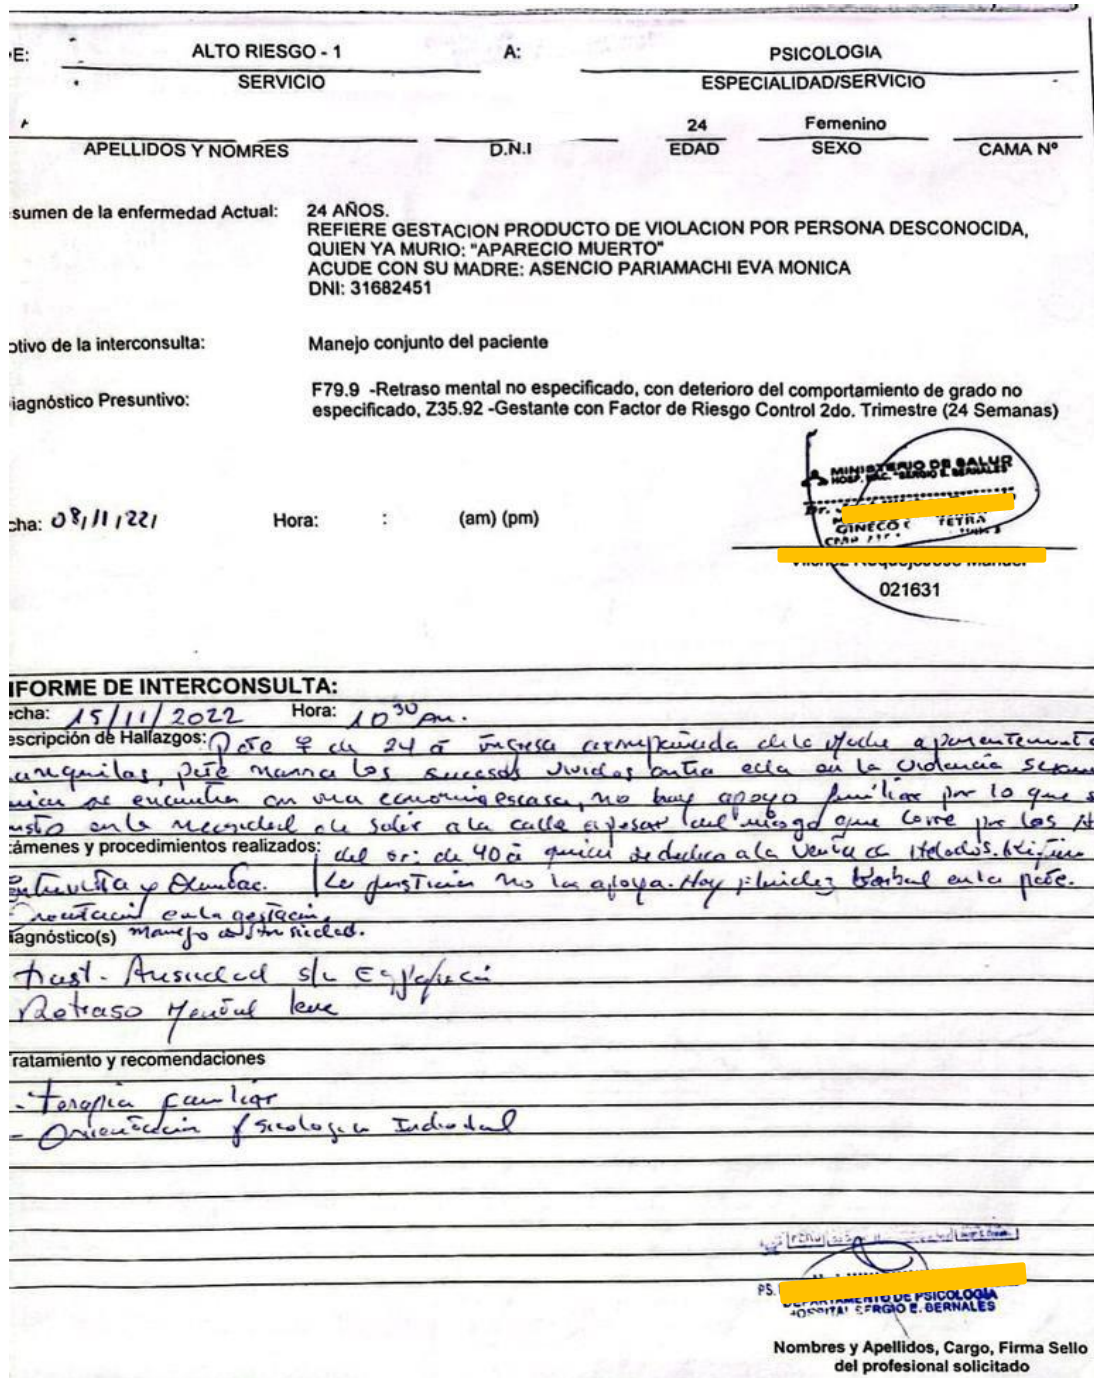 E: ALTO RIESGO - 1 A: PSICOLOGIA
SERVICIO ESPECIALIDAD/SERVICIO
24 Femenino
APELLIDOS Y NOMRES D.N.I EDAD SEXO CAMA Nº
sumen de la enfermedad Actual: 24 AÑOS.
REFIERE GESTACION PRODUCTO DE VIOLACION POR PERSONA DESCONOCIDA,
QUIEN YA MURIO: "APARECIO MUERTO"
ACUDE CON SU MADRE: ASENCIO PARIAMACHI EVA MONICA
DNI: 31682451
otivo de la interconsulta: Manejo conjunto del paciente
iagnóstico Presuntivo: F79.9 -Retraso mental no especificado, con deterioro del comportamiento de grado no
especificado, Z35.92 -Gestante con Factor de Riesgo Control 2do. Trimestre (24 Semanas)
MINISTERIO DE SALUR
HOSP. NAC. "SERGIO E. BERNALES"
Dr.
GINECO TETRA
cha: 08/11/22/ Hora: : (am) (pm)
021631
IFORME DE INTERCONSULTA:
echa: 15/11/2022 Hora: 10 30
escripción de Hallazgos: Pcte ♀ de 24 a ingresa acompañada de la Madre aparentemente
narra los sucesos vividos contra ella en la violencia
se encuentra con una economia escasa, no hay apoyo familiar por lo que
en la necesidad de salir a la calle a pesar del riesgo que corre por los
támenes y procedimientos realizados: del sr. de 40 a quien se dedica a la venta de Helados.
Entrevista y La justicia no la apoya. Hay fluidez verbal en la pcte.
Orientación en la gestación.
iagnóstico(s) manejo de ansiedad.
trast. Ansiedad s/
Retraso Mental leve
ratamiento y recomendaciones
- Terapia familiar
- Orientación Psicologica Individual
PS.
DEPARTAMENTO DE PSICOLOGIA
HOSPITAL SERGIO E. BERNALES
Nombres y Apellidos, Cargo, Firma Sello
del profesional solicitado